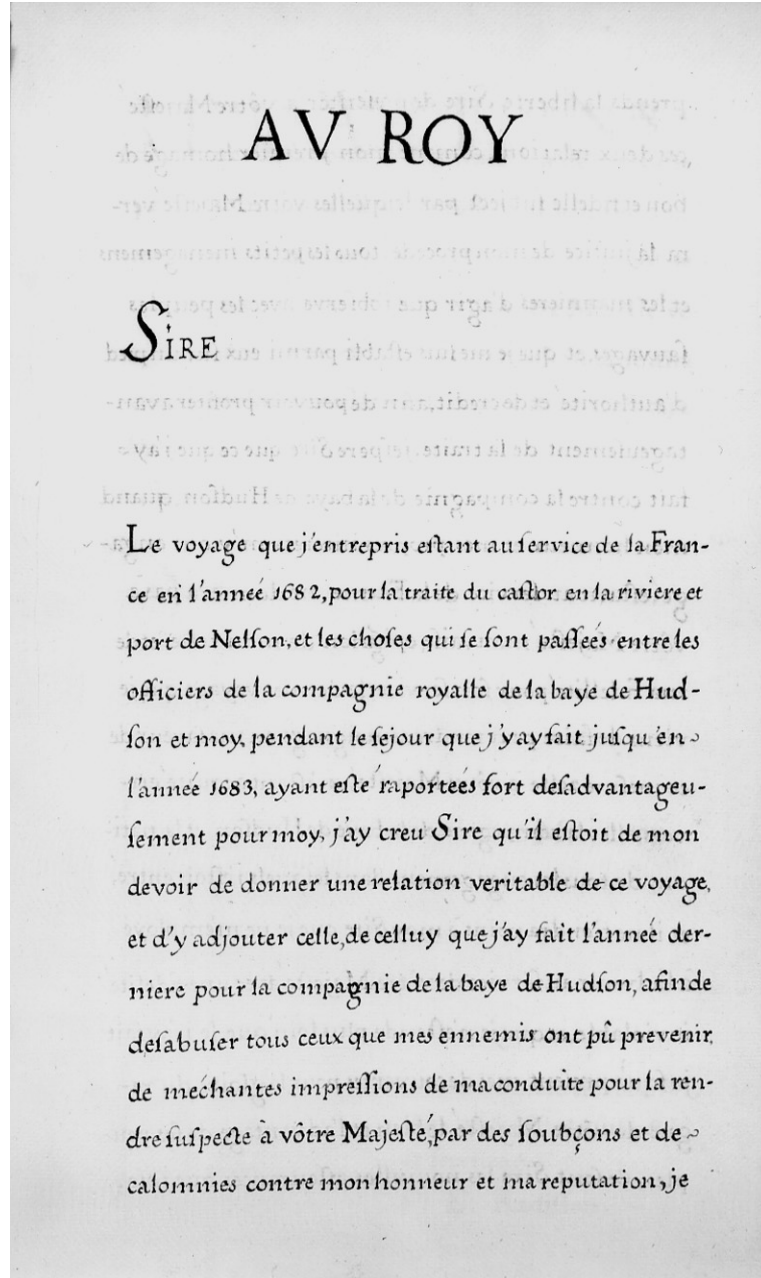 AV ROY
SIRE
Le voyage que j'entrepris eſtant au ſervice de la Fran-
ce en l'anneé 1682, pour la traite du caſtor en la riviere et
port de Nelſon, et les choſes qui ſe ſont paſſeés entre les
officiers de la compagnie royalle de la baye de Hud-
ſon et moy, pendant le ſejour que j'y ay fait juſqu'en
l'anneé 1683, ayant eſté raporteés fort deſadvantageu-
ſement pour moy, j'ay creu Sire qu'il eſtoit de mon
devoir de donner une relation veritable de ce voyage,
et d'y adjouter celle, de celluy que j'ay fait l'anneé der-
niere pour la compagnie de la baye de Hudſon, afin de
deſabuſer tous ceux que mes ennemis ont pû prevenir
de mechantes impreſſions de ma conduite pour la ren-
dre ſuſpecte à vôtre Majeſté, par des ſoubçons et de
calomnies contre mon honneur et ma reputation, je